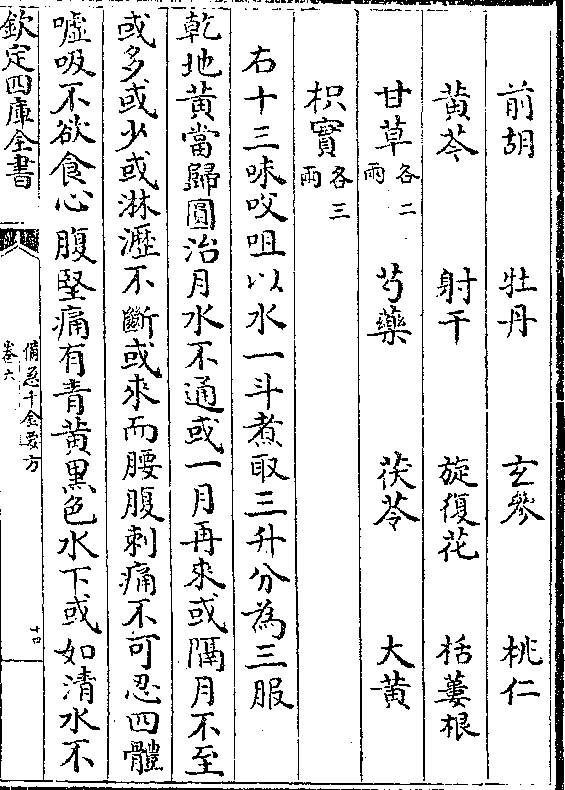 前胡 牡丹 玄參 桃仁
黄芩 射干 旋復花 栝蔞根
甘草各二兩 芍藥 茯苓 大黄
枳實各三兩
右十三味㕮咀以水一斗煮取三升分為三服
乾地黄當歸圓治月水不通或一月再來或隔月不至
或多或少或淋瀝不斷或來而腰腹刺痛不可忍四體
嘘吸不欲食心腹堅痛有青黄黒色水下或如清水不
欽定四庫全書
備急千金要方
卷六
十四